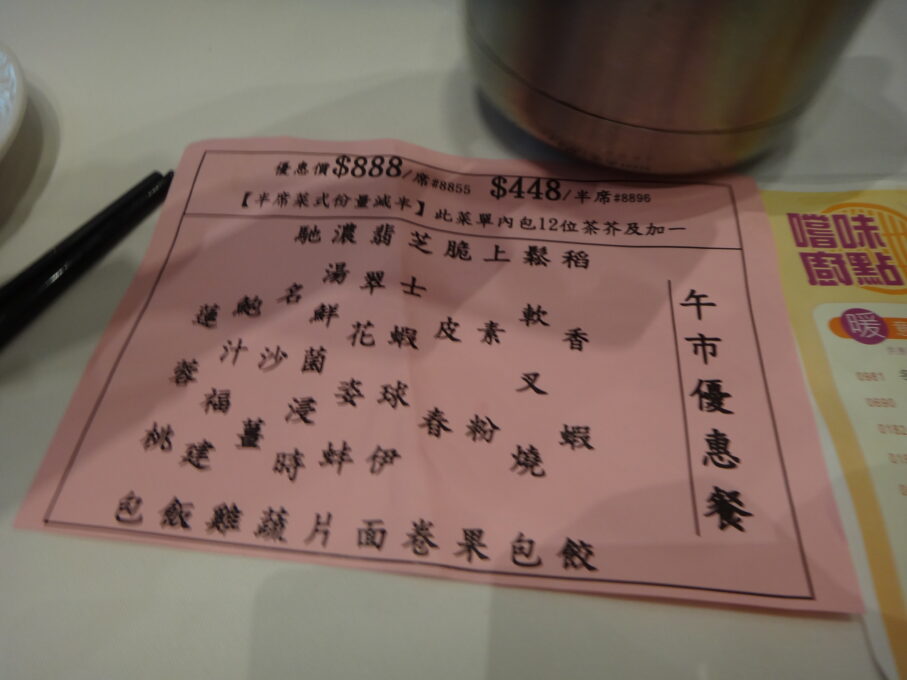 優惠價$888/席#8855 $448/半席#8896
【半席菜式份量減半】此菜單內包12位茶芥及加一
午市優惠餐
稻香蝦餃
鬆軟叉燒包
上素粉果
脆皮春卷
芝士蝦球伊面
翡翠花姿蚌片
濃湯鮮菌浸時蔬
馳名沙薑雞
鮑汁福建飯
蓮蓉桃包
嚐味
廚點
暖
0981
0690